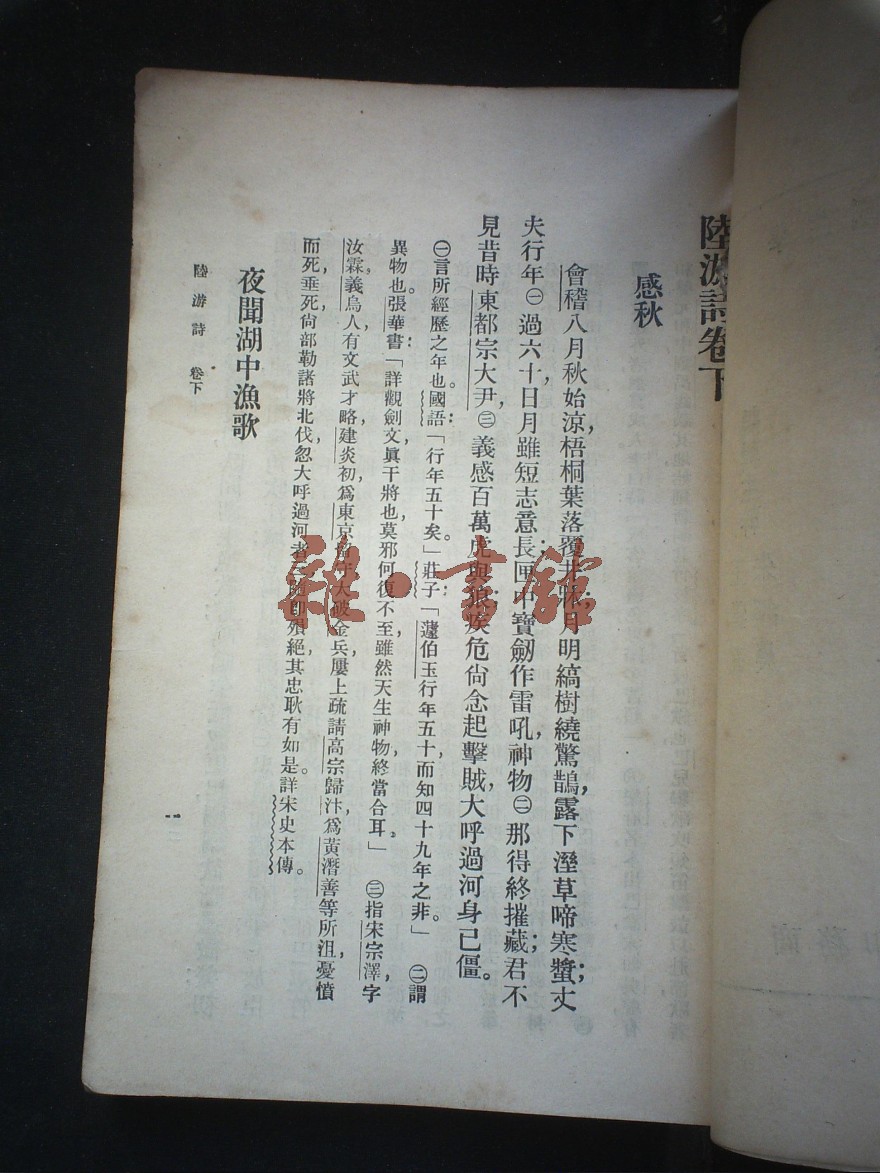 陸游詩卷下
感秋
會稽八月秋始涼，梧桐葉落覆井牀；月明縞樹繞驚鵲，露下溼草啼寒螿；丈
夫行年㊀過六十，日月雖短志意長；匣中寶劒作雷吼，神物㊁那得終摧藏；君不
見昔時東都宗大尹，㊂義感百萬虎與狼；疾危尙念起擊賊，大呼過河身已僵。
㊀言所經歷之年也。國語：「行年五十矣。」莊子：「蘧伯玉行年五十而知四十九年之非。」 ㊁謂
異物也。張華書：「詳觀劍文，眞干將也，莫邪何復不至，雖然，天生神物，終當合耳。」 ㊂指宋宗澤，字
汝霖，義烏人，有文武才略，建炎初，爲東京留守，大破金兵，屢上疏請高宗歸汴，爲黃潛善等所沮，憂憤
而死，垂死，尙部勒諸將北伐，忽大呼過河者三，隨卽殞絕，其忠耿有如是。詳宋史本傳。
夜聞湖中漁歌
陸游詩 卷下
一
雜·書館